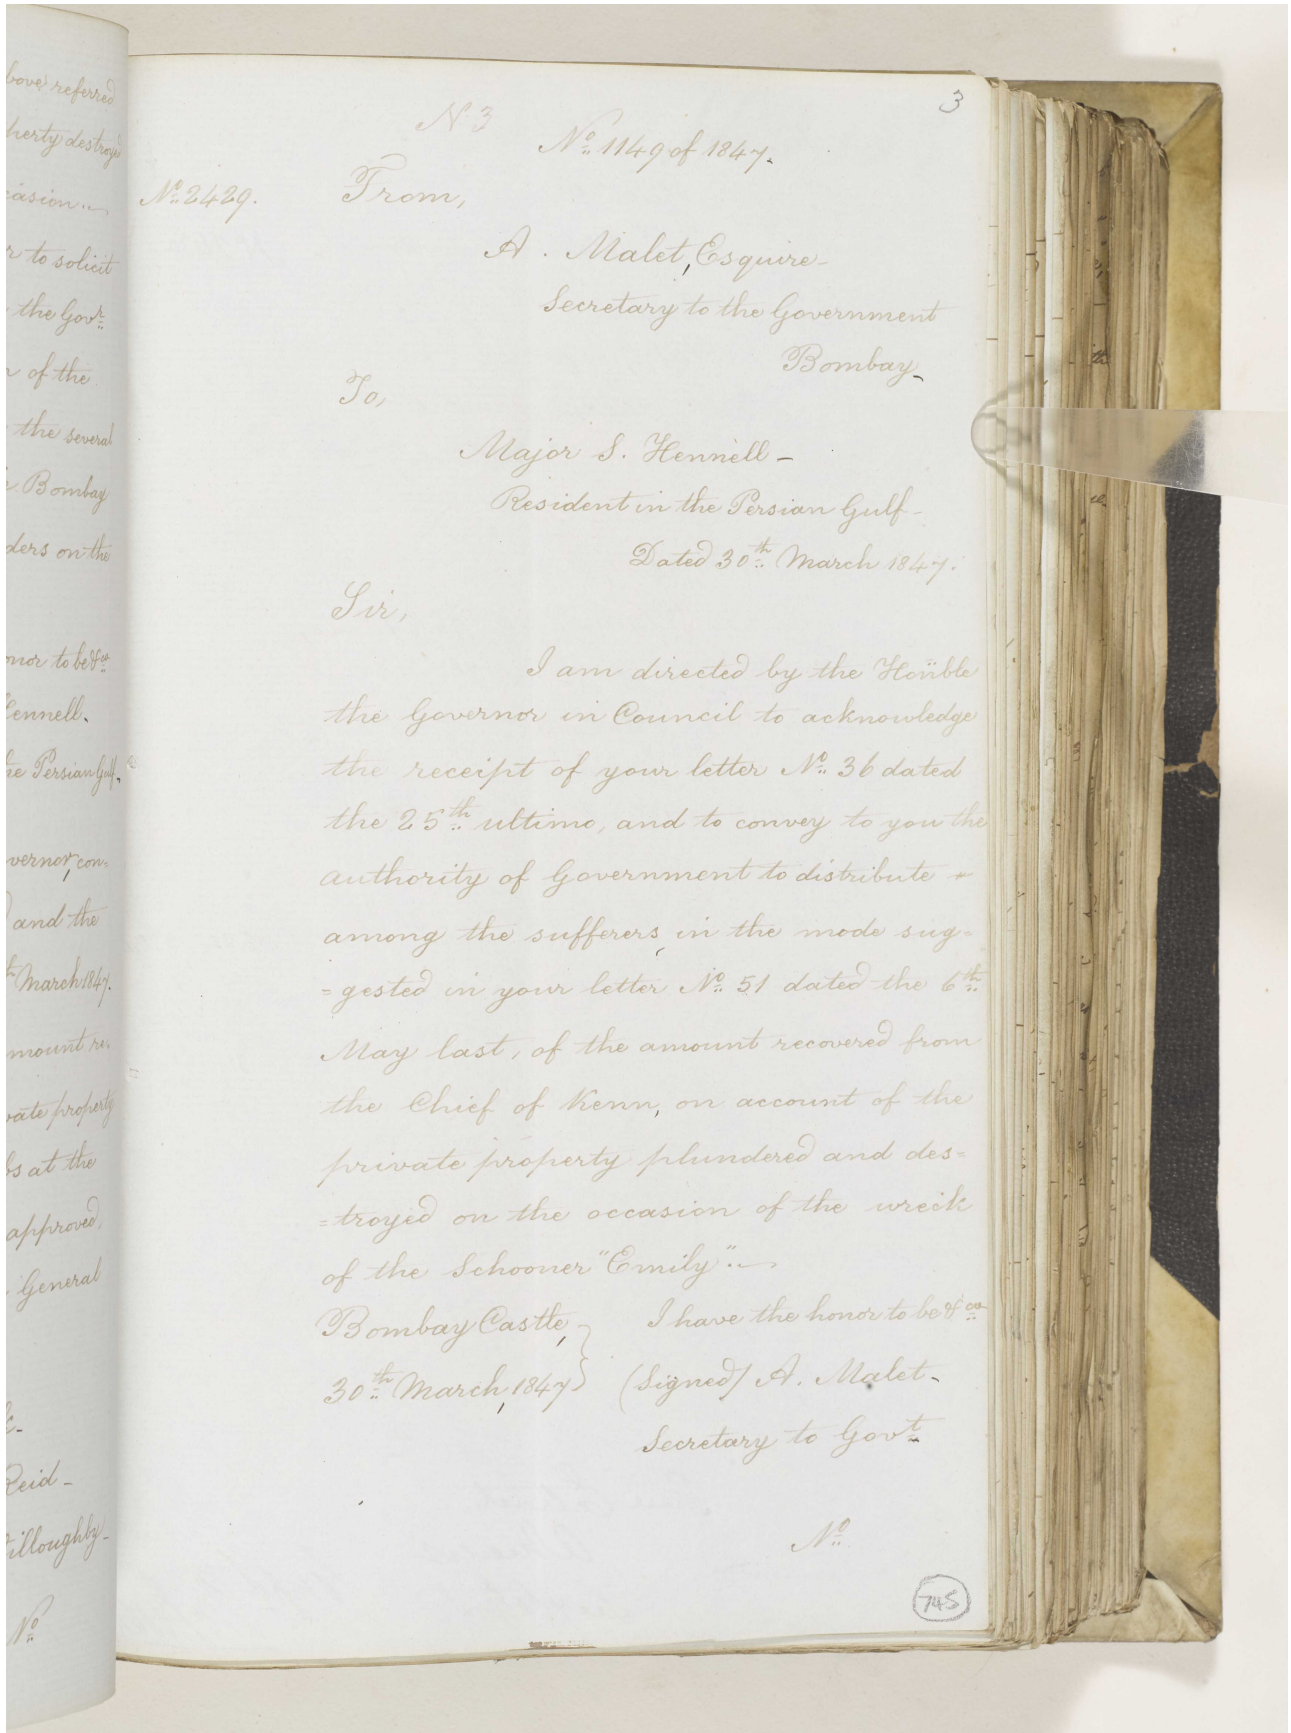 bove referred
perty destroyed
casion
r to solicit
the Govr.
n of the
the several
Bombay
ders on the
onor to be &ca.
Hennell.
the Persian Gulf.
vernor, con=
and the
March 1847.
mount re=
vate property
bs at the
approved,
General
Reid_
Willoughby_
No.
3
N 3
No. 1149 of 1847.
No. 2429.
From,
A. Malet, Esquire_
Secretary to the Government
Bombay_
To,
Major S. Hennell_
Resident in the Persian Gulf_
Dated 30th. March 1847.
Sir,
I am directed by the Honble
the Governor in Council to acknowledge
the receipt of your letter No. 36 dated
the 25th. ultimo, and to convey to you the
authority of Government to distribute
among the sufferers, in the mode sug=
=gested in your letter No. 51 dated the 6th.
May last, of the amount recovered from
the Chief of Kenn, on account of the
private property plundered and des=
=troyed on the occasion of the wreck
of the Schooner "Emily".
Bombay Castle, } I have the honor to be &ca.
30th. March, 1847 } (Signed) A. Malet_
Secretary to Govt.
No.
745